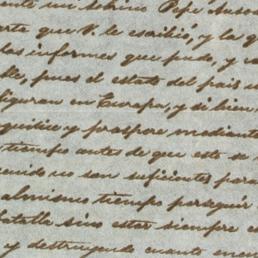 ente mi sobrino Pepe
arta que V. le escribió, y la q
las informes que pude, y con
lle, pues el estado del pais n
figuran en Europa, y si bien
y prospere mediante
tiempo antes de que esto se
cuando no son suficientes para
al mismo tiempo perseguir
batalla sino estar siempre en
y destruyendo cuanto encu